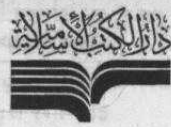 دار الكتب الإسلامية